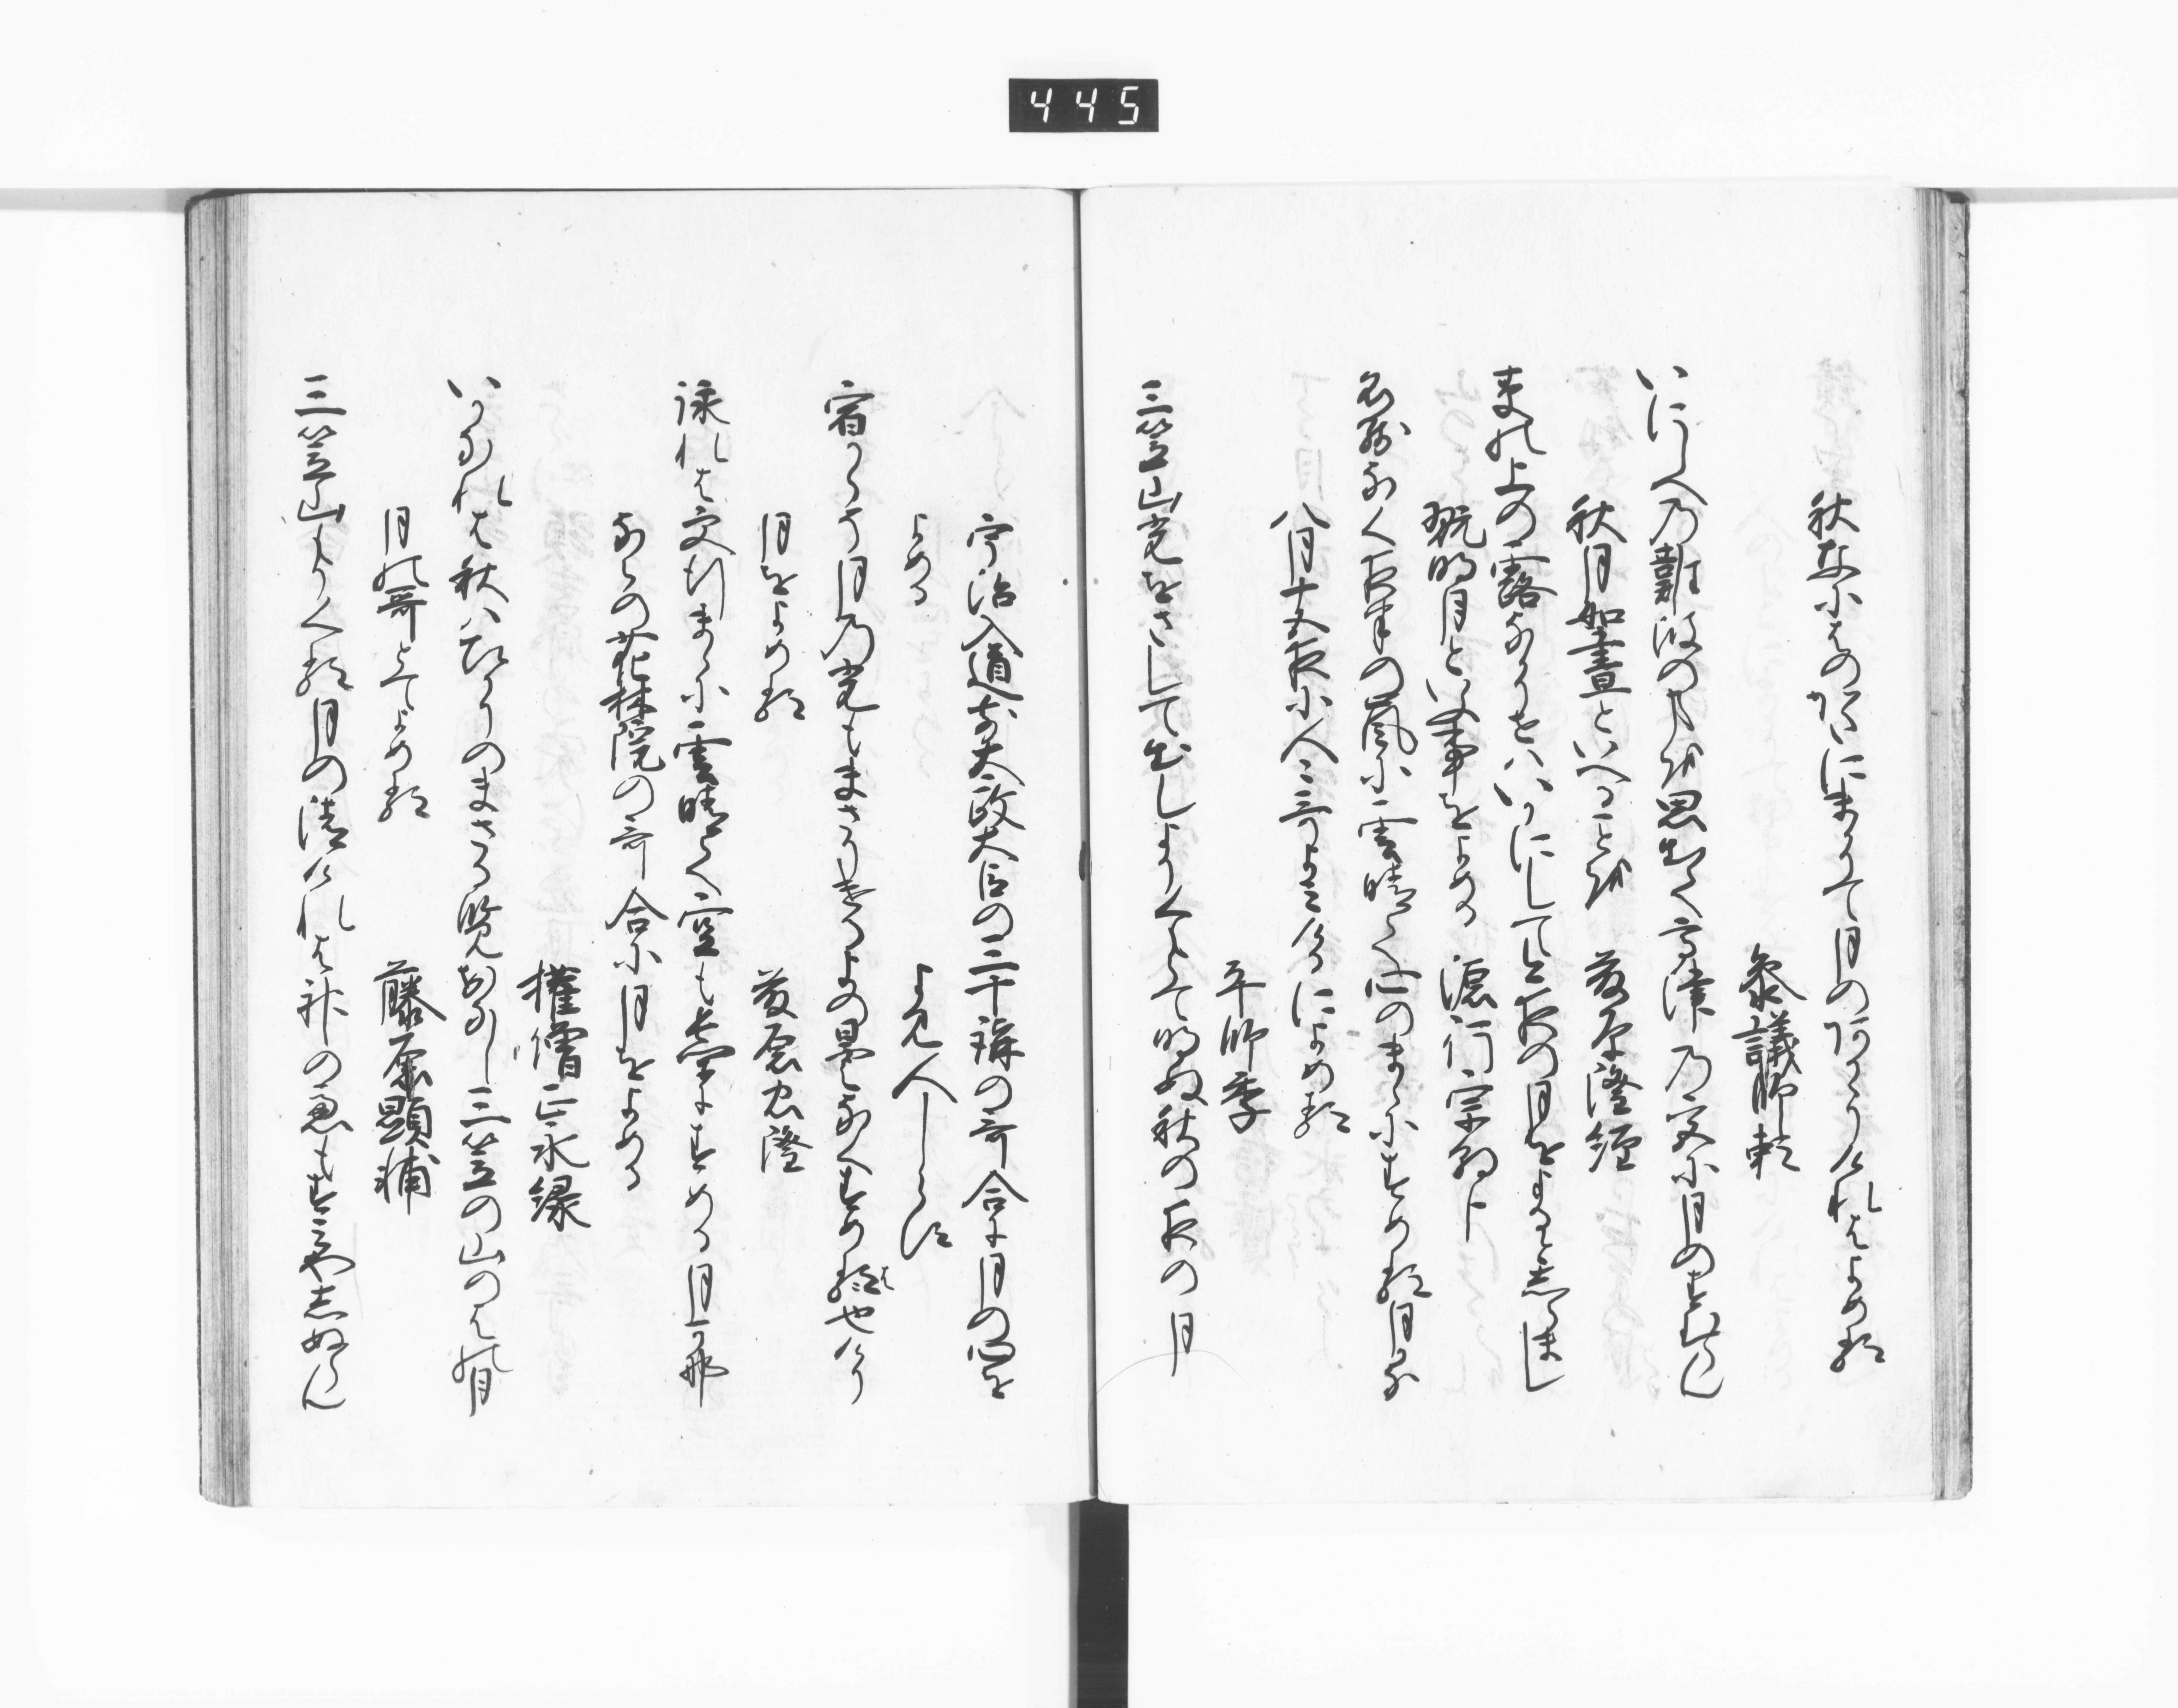 445
秋なにはのかたにまかりて月のあかゝりけれはよめる
参議師頼
いにしへの難波のことを思出て高津の宮に月のすむらん
秋月如昼といへることを 藤原隆経
草の上の露なかりせはいかにしてこよひの月をよるとしらまし
翫明月といふ事をよめる 源行宗朝臣
名残なく夜半の嵐に雲晴て心のまゝにすめる月かな
八月十五夜に人々哥よみけるによめる
平師季
三笠山光をさして出しよりくもらて明ぬ秋の夜の月
宇治入道前太政大臣の三十講の哥合に月の心を
よめる よみ人しらす
宿からそ月の光もまさりけるよの曇なくすめはなりけり
月をよめる 藤原忠隆
詠れは更行まゝに雲晴て空ものとかにすめる月かな
ならの花林院の哥合に月をよめる
権僧正永縁
いかなれは秋はひかりのまさる覧おなし三笠の山のはの月
月の哥とてよめる 藤原顕輔
三笠山もりくる月の清けれは神の心もすみやしぬらん